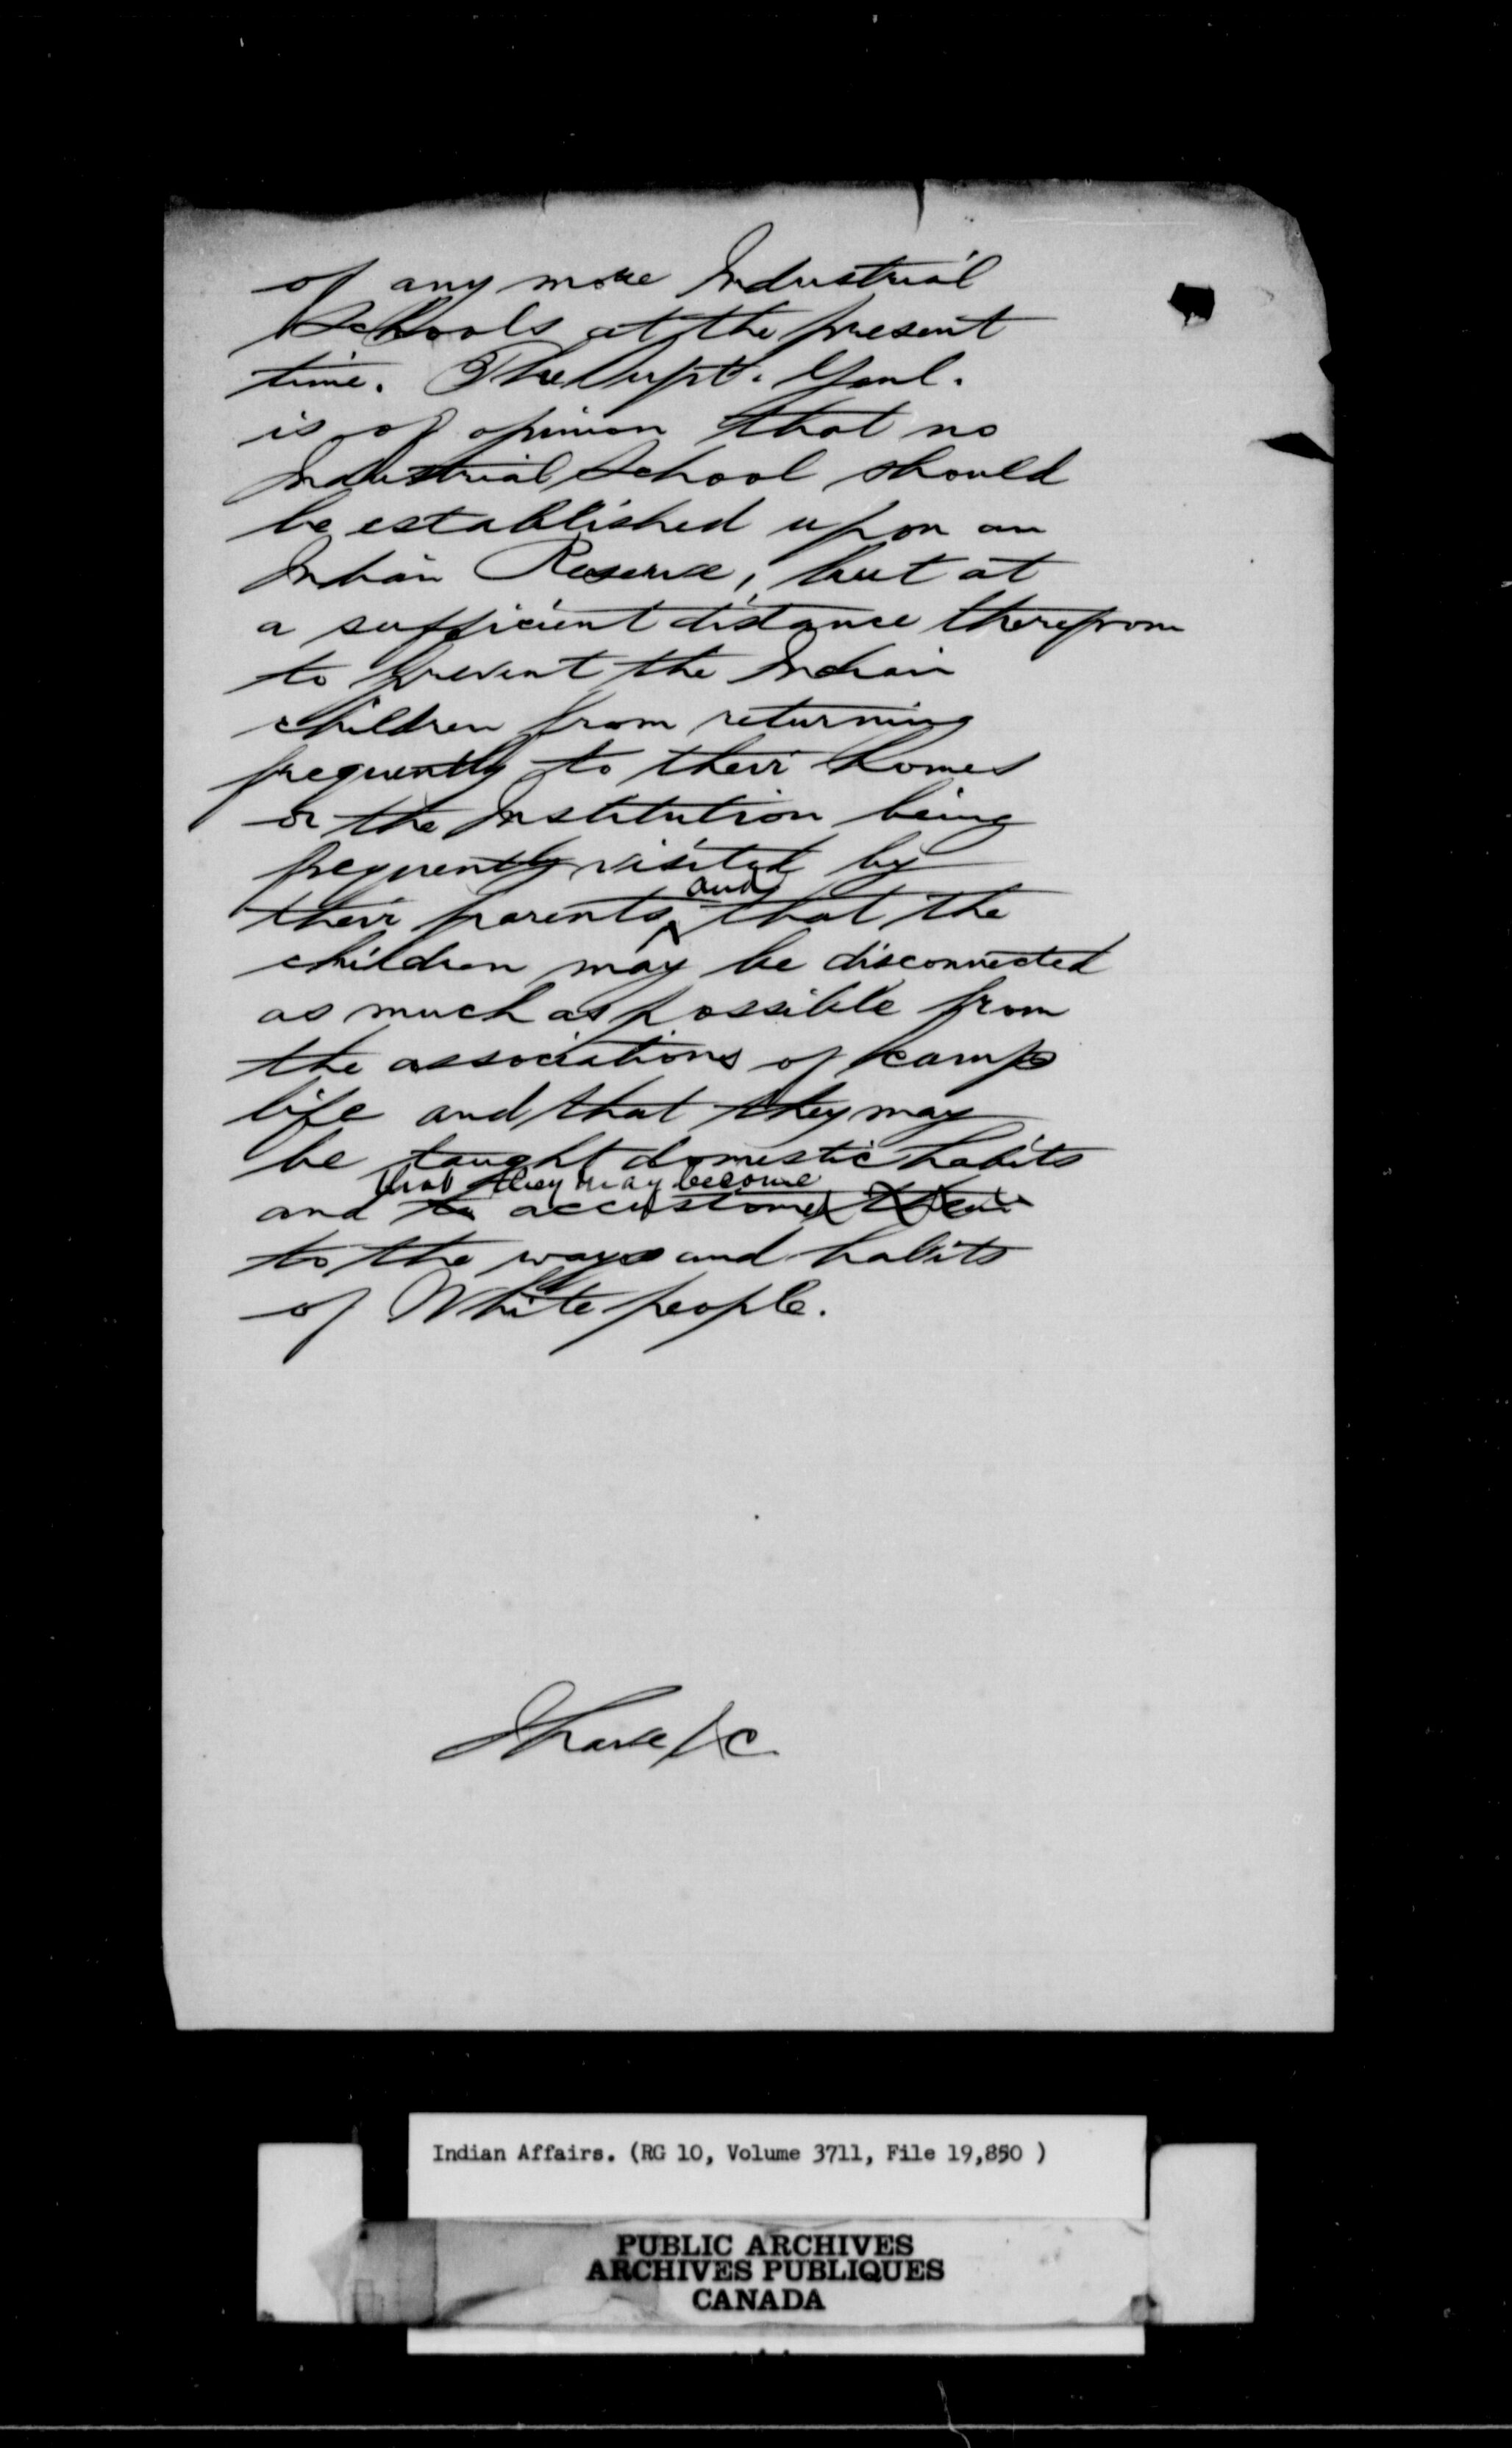 of any more Industrial
Schools at the present
time. The Supt. Genl.
is of opinion that no
Industrial School should
be established upon an
Indian Reserve, but at
a sufficient distance therefrom
to prevent the Indian
children from returning
frequently to their homes
or the Institution being
frequently visited by
their parents and that the
children may be disconnected
as much as possible from
the associations of camp
life and that they may
be taught domestic habits
that they may become
and to accustomed them
to the ways and habits
of White people.
I have &c
Indian Affairs. (RG 10, Volume 3711, File 19,850 )
PUBLIC ARCHIVES
ARCHIVES PUBLIQUES
CANADA